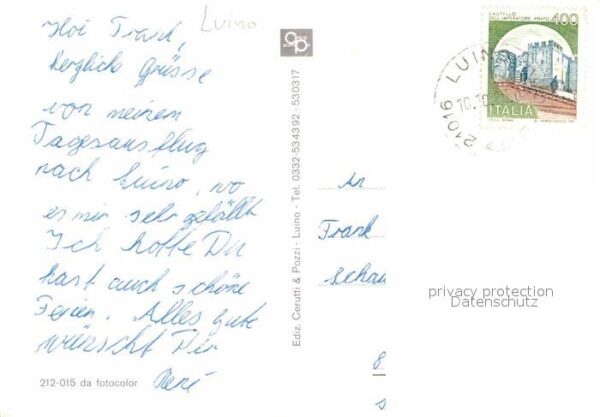 Luino
Hoi Frank,
herzlich Grüsse
von meinem
Tagesausflug
nach Luino, wo
es mir sehr gefällt
Ich hoffe Du
hast auch schöne
Ferien. Alles Gute
wünscht Dir
René
212-015 da fotocolor
Ediz. Cerutti & Pozzi - Luino - Tel. 0332-534392 - 530317
CASTELLO
DELL'IMPERATORE - PRATO
400
ITALIA
21016 LUINO
10.30
An
Frank
privacy protection
Datenschutz
8